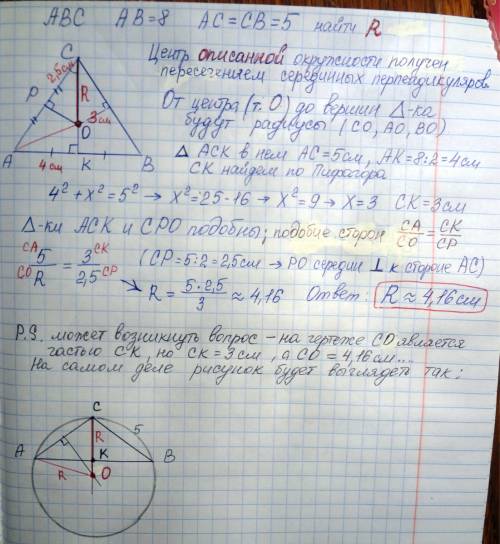 ABC AB=8 AC=CB=5 найти R
C
2,5см
P
R
O
3см
A
4см
K
B
Центр описанной окружности получен
пересечением серединных перпендикуляров
От центра (т. О) до вершин Δ-ка
будут радиусы (CO, AO, BO)
Δ ACK в нем AC=5см, AK=8:2=4см
CK найдем по Пифагора
4²+x²=5² → x²=25-16 → x²=9 → x=3 CK=3см
Δ-ки ACK и CPO подобны; подобие сторон CA/CO = CK/CP
CA 5 / CO R = 3 CK / 2,5 CP (CP=5:2=2,5см → PO середин ⊥ к стороне AC)
R = 5·2,5/3 ≈ 4,16 Ответ: R ≈ 4,16см
P.S. может возникнуть вопрос – на чертеже CO является
частью CK, но CK=3см, а CO=4,16см...
На самом деле рисунок будет выглядеть так:
C
R
5
A
K
B
R
O